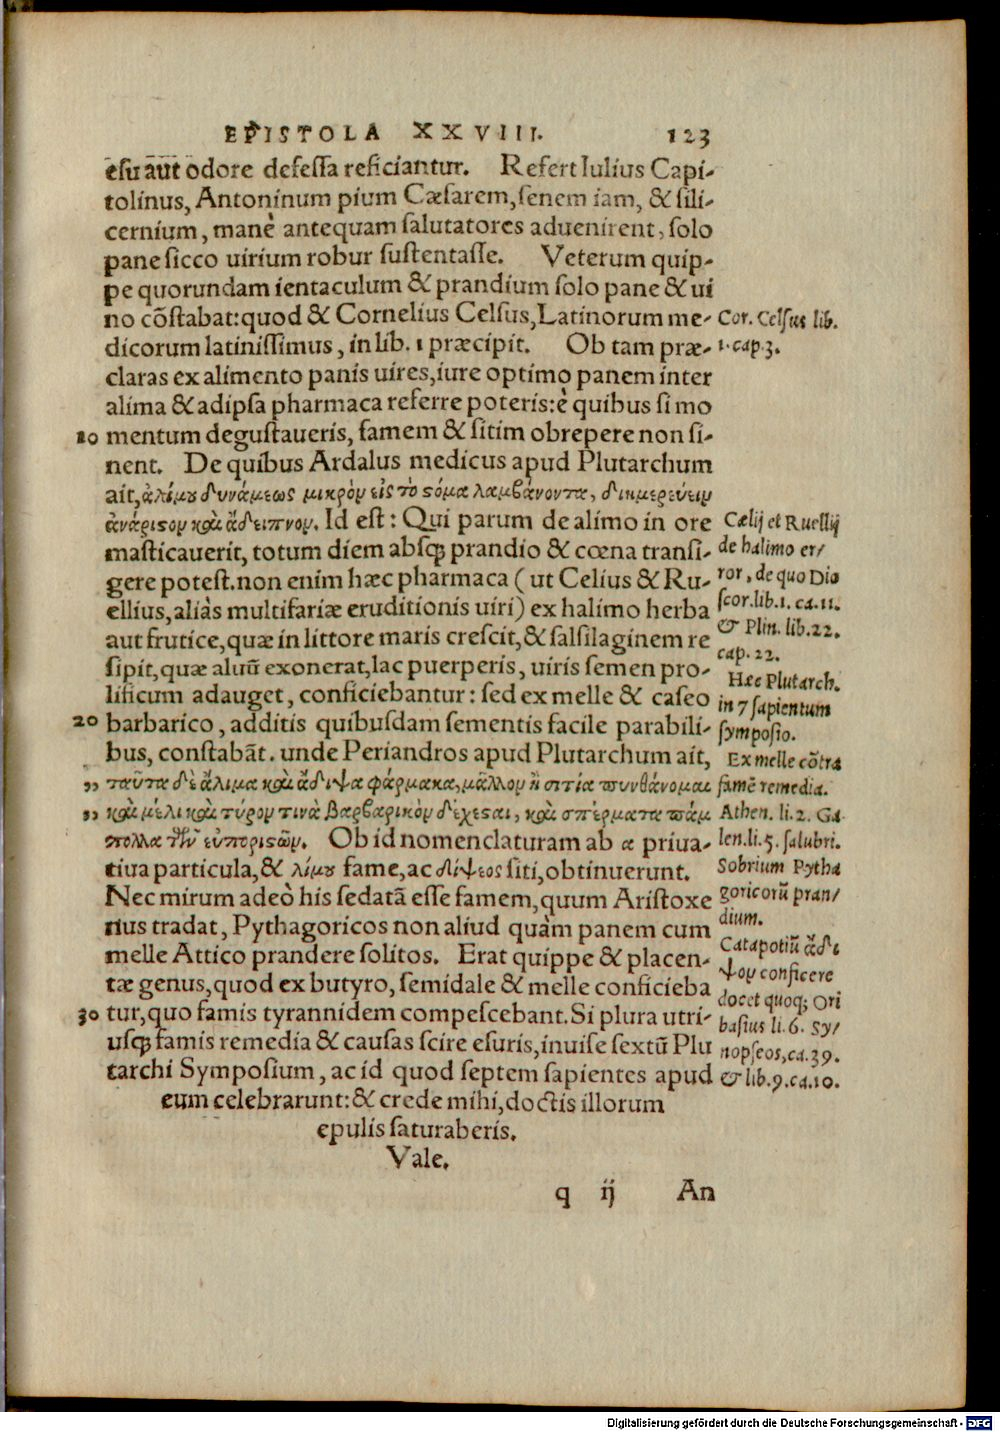 EPISTOLA XXVIII. 123
esu aut odore defessa reficiantur. Refert Iulius Capi-
tolinus, Antoninum pium Cæsarem, senem iam, & sili-
cernium, manè antequam salutatores aduenirent, solo
pane sicco uirium robur sustentasse. Veterum quip-
pe quorundam ientaculum & prandium solo pane & ui
no cõstabat: quod & Cornelius Celsus, Latinorum me-
dicorum latinissimus, in lib. 1 præcipit. Ob tam præ-
claras ex alimento panis uires, iure optimo panem inter
alima & adipsa pharmaca referre poteris: è quibus si mo
10 mentum degustaueris, famem & sitim obrepere non si-
nent. De quibus Ardalus medicus apud Plutarchum
ait, ἀλίμου δυνάμεως μικρὸν εἰς τὸ ϛόμα λαμβάνοντα, διημερεύειν
ἀνάριϛον καὶ ἄδειπνον. Id est: Qui parum de alimo in ore
masticauerit, totum diem absq; prandio & cœna transi-
gere potest. non enim hæc pharmaca (ut Celius & Ru-
ellius, aliàs multifariæ eruditionis uiri) ex halimo herba
aut frutice, quæ in littore maris crescit, & salsilaginem re
sipit, quæ aluũ exonerat, lac puerperis, uiris semen pro-
lificum adauget, conficiebantur: sed ex melle & caseo
20 barbarico, additis quibusdam sementis facile parabili-
bus, constabãt. unde Periandros apud Plutarchum ait,
„ ταῦτα δὲ ἄλιμα καὶ ἄδιψα φάρμακα, μᾶλλον ἢ σιτία πυνθάνομαι
„ καὶ μέλι καὶ τύρον τινὰ βαρβαρικὸν δέχεσαι, καὶ σπέρματα πάμ
πολλα τῶν εὐποριϛῶν. Ob id nomenclaturam ab α priua-
tiua particula, & λίμου fame, ac δίψεος siti, obtinuerunt.
Nec mirum adeò his sedatã esse famem, quum Aristoxe
nus tradat, Pythagoricos non aliud quàm panem cum
melle Attico prandere solitos. Erat quippe & placen-
tæ genus, quod ex butyro, semidale & melle conficieba
30 tur, quo famis tyrannidem compescebant. Si plura utri-
usq; famis remedia & causas scire esuris, inuise sextũ Plu
tarchi Symposium, ac id quod septem sapientes apud
eum celebrarunt: & crede mihi, doctis illorum
epulis saturaberis.
Vale.
q ij An
Cor. Celsus lib.
1. cap. 3.
Cælij et Ruellij
de halimo er/
ror, de quo Dio
scor. lib. 1. ca. 11.
& Plin. lib. 22.
cap. 22.
Hæc Plutarch.
in 7 sapientum
symposio.
Ex melle cõtra
famẽ remedia.
Athen. li. 2. Ga
len. li. 5. salubri.
Sobrium Pytha
goricorũ pran/
dium.
Catapotiũ ἄδι
ψον conficere
docet quoq; Ori
basius li. 6. Sy/
nopseos, ca. 39.
& lib. 9. ca. 10.
Digitalisierung gefördert durch die Deutsche Forschungsgemeinschaft - DFG